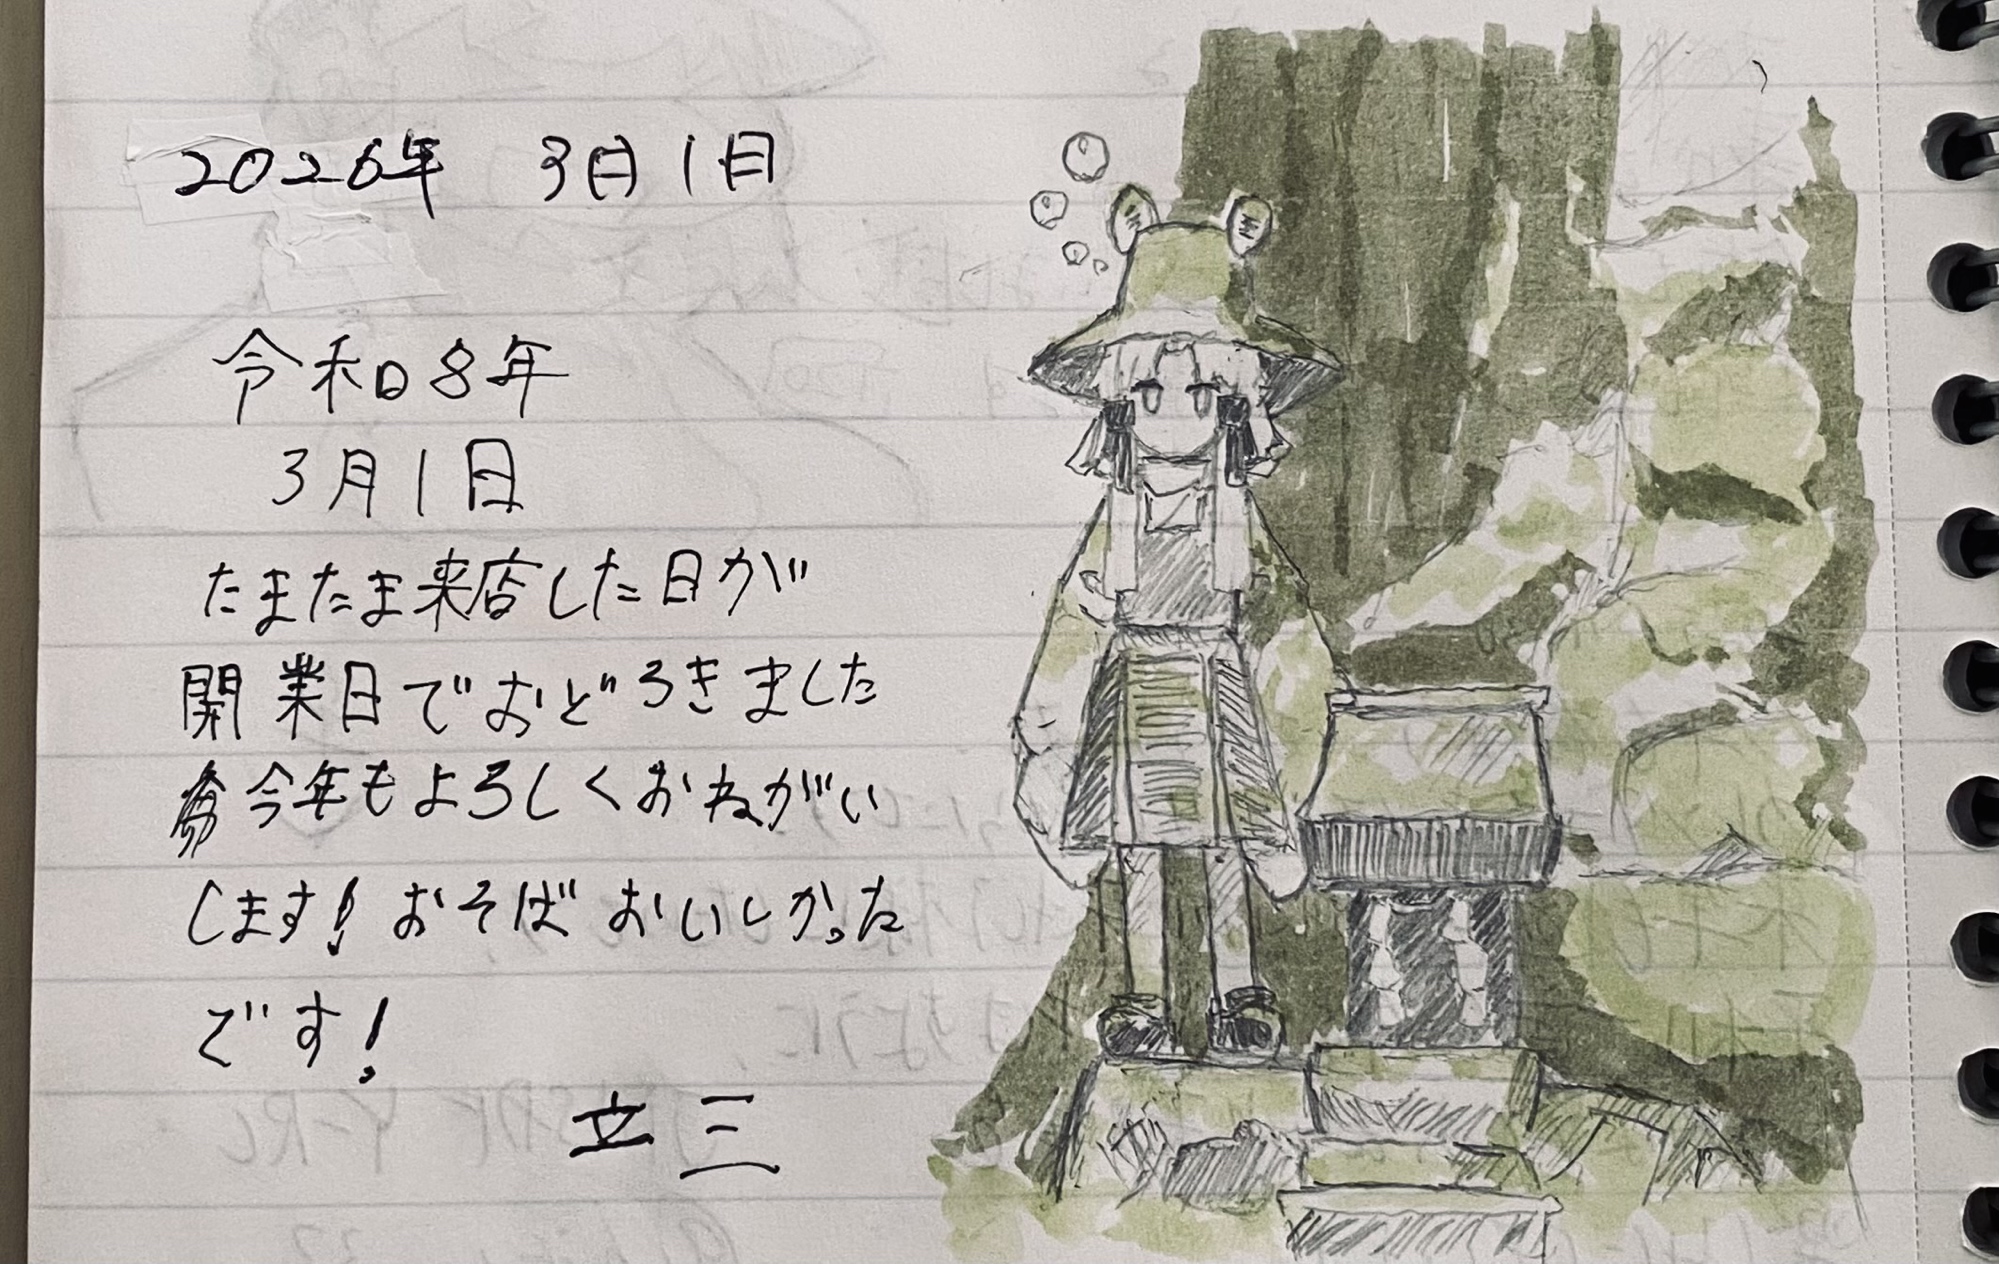 2026年 3月1日
令和8年
3月1日
たまたま来店した日が
開業日でおどろきました
今年もよろしくおねがい
します! おそば おいしかった
です!
立三